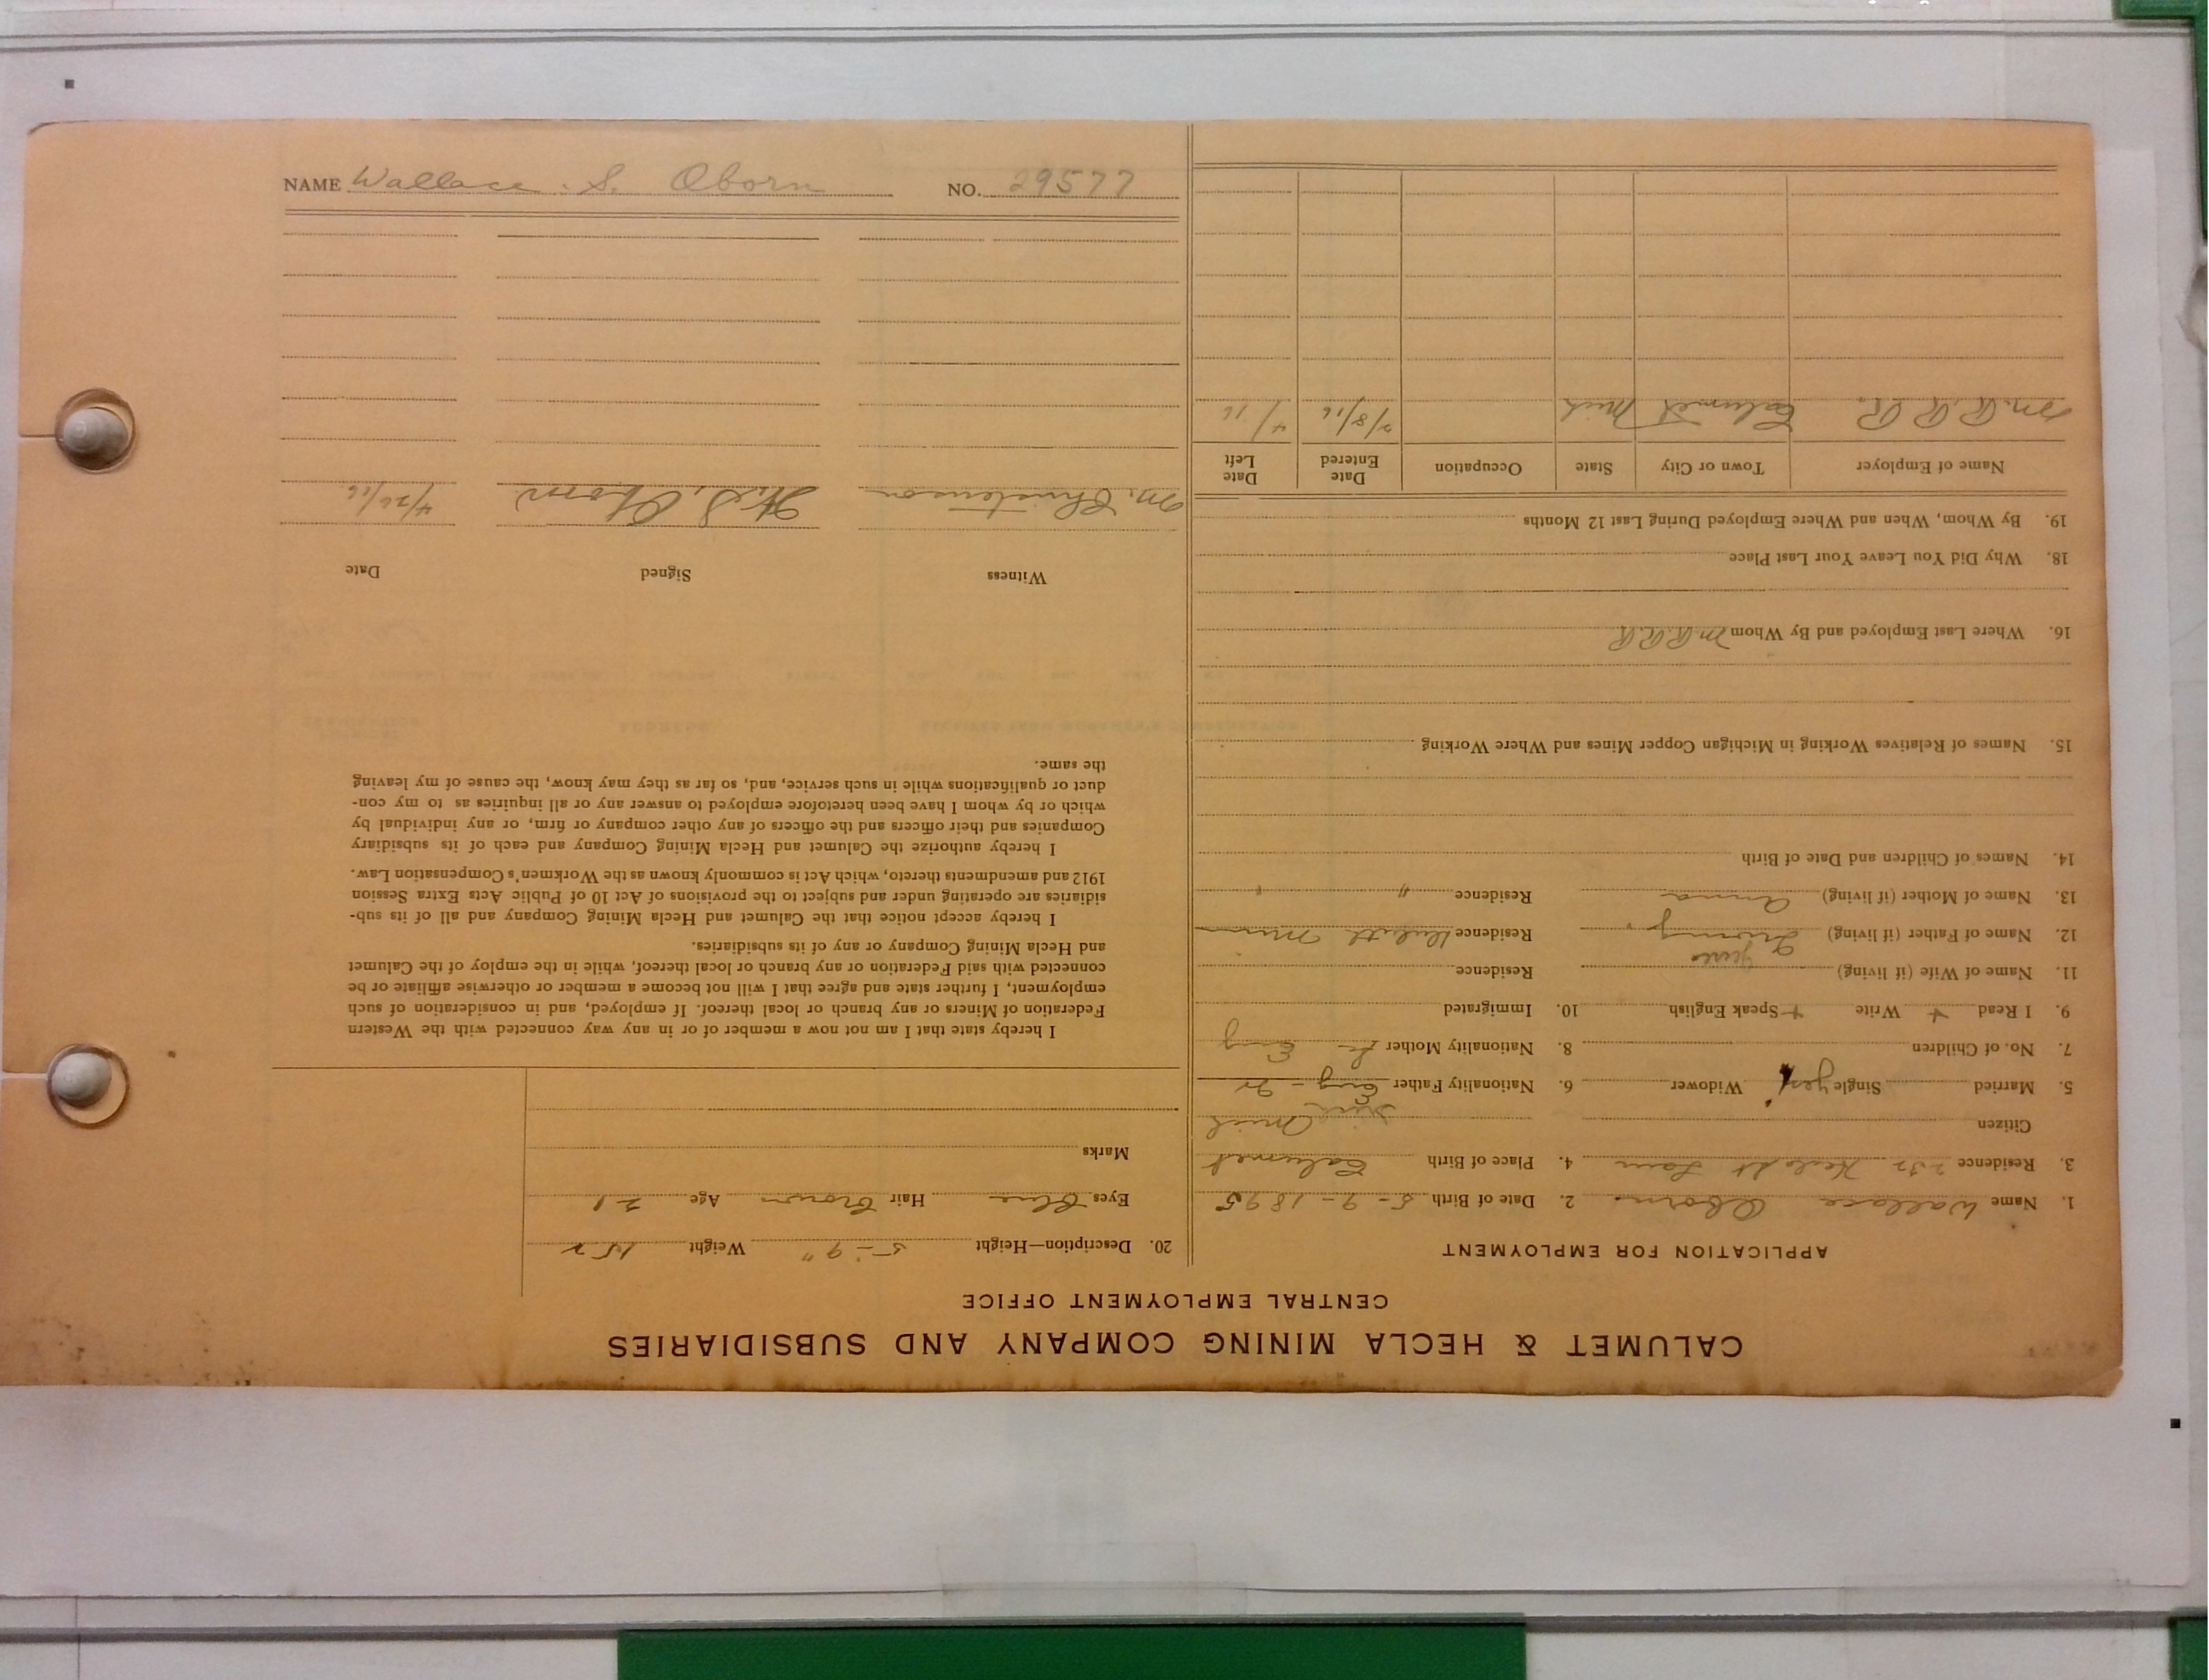 CALUMET & HECLA MINING COMPANY AND SUBSIDIARIES
CENTRAL EMPLOYMENT OFFICE
APPLICATION FOR EMPLOYMENT
1. Name Wallace Oborn. 2. Date of Birth 5-9-1895
3. Residence 232 4. Place of Birth Calumet
Citizen Mich
5. Married Single yes Widower 6. Nationality Father Eng - Fr
7. No. of Children 8. Nationality Mother Fr Eng
9. I Read + Write + Speak English 10. Immigrated
11. Name of Wife (if living) Residence
12. Name of Father (if living) Residence Duluth Minn
13. Name of Mother (if living) Anna Residence " "
14. Names of Children and Date of Birth
15. Names of Relatives Working in Michigan Copper Mines and Where Working
16. Where Last Employed and By Whom M.R.R.R
18. Why Did You Leave Your Last Place
19. By Whom, When and Where Employed During Last 12 Months
Name of Employer Town or City State Occupation Date Entered Date Left
M.R.R.R. Calumet Mich /8/16 4/16
20. Description—Height 5-9" Weight 152
Eyes Blue Hair Brown Age 21
Marks
I hereby state that I am not now a member of or in any way connected with the Western
Federation of Miners or any branch or local thereof. If employed, and in consideration of such
employment, I further state and agree that I will not become a member or otherwise affiliate or be
connected with said Federation or any branch or local thereof, while in the employ of the Calumet
and Hecla Mining Company or any of its subsidiaries.
I hereby accept notice that the Calumet and Hecla Mining Company and all of its sub-
sidiaries are operating under and subject to the provisions of Act 10 of Public Acts Extra Session
1912 and amendments thereto, which Act is commonly known as the Workmen's Compensation Law.
I hereby authorize the Calumet and Hecla Mining Company and each of its subsidiary
Companies and their officers and the officers of any other company or firm, or any individual by
which or by whom I have been heretofore employed to answer any or all inquiries as to my con-
duct or qualifications while in such service, and, so far as they may know, the cause of my leaving
the same.
Witness Signed Date
M. Christenson W.S. Oborn 4/26/16
NAME Wallace. S. Oborn NO. 29577